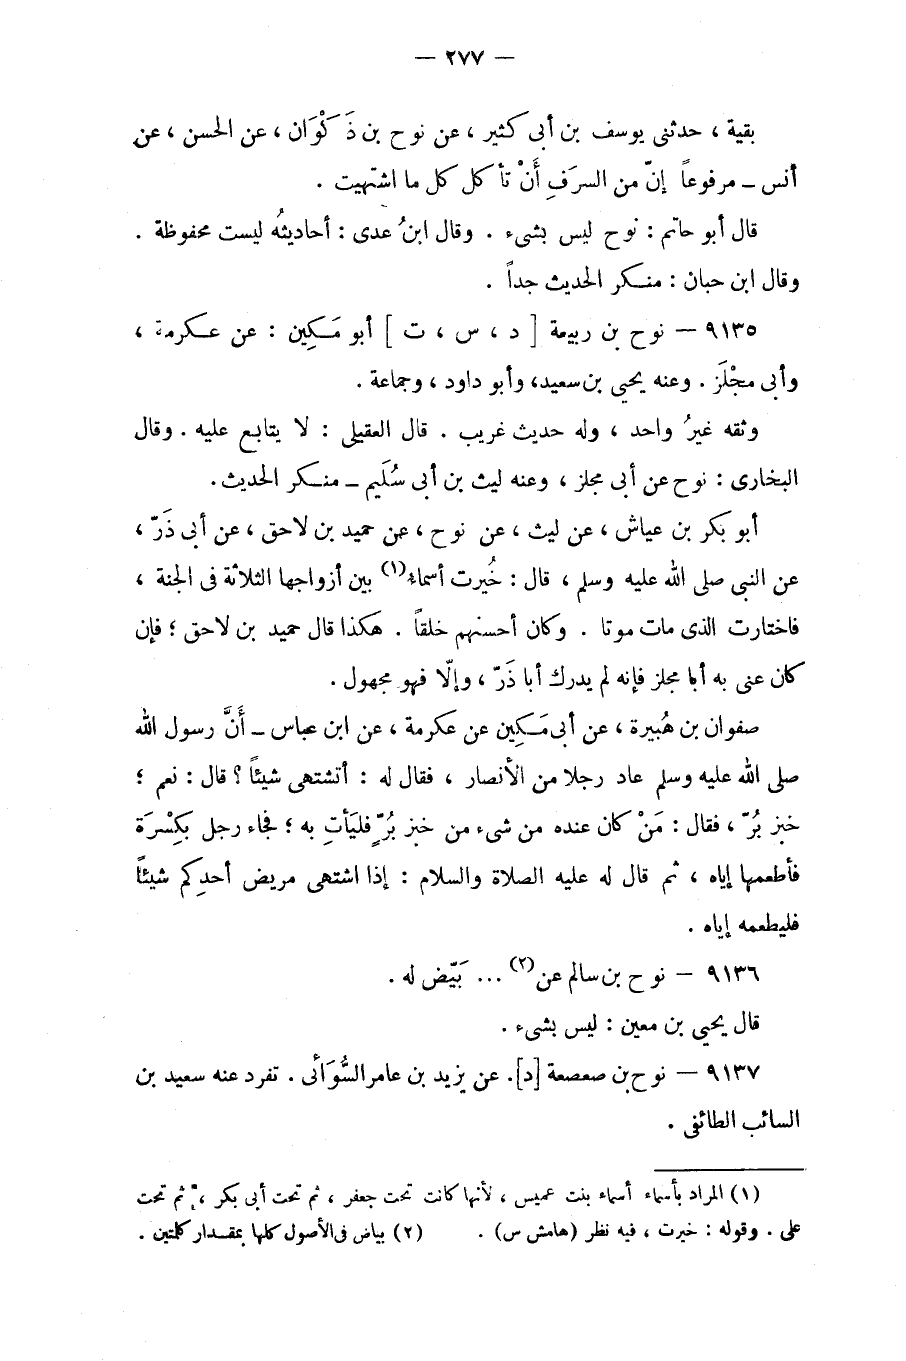 — ٢٧٧ —
بقية ، حدثنى يوسف بن أبى كثير ، عن نوح بن ذَكْوَان ، عن الحسن ، عن
أنس ــ مرفوعاً إنّ من السرَفِ أَنْ تأكل كل ما اشتهيت .
قال أبو حاتم : نوح ليس بشىء . وقال ابنُ عدى : أحاديثهُ ليست محفوظة .
وقال ابن حبان : منكر الحديث جداً .
٩١٣٥ — نوح بن ربيعة [ د ، س ، ت ] أبو مَكِين : عن عكرمة ،
وأبى مجْلَز . وعنه يحيى بن سعيد، وأبو داود ، وجماعة .
وثقه غيرُ واحد ، وله حديث غريب . قال العقيلى : لا يتابع عليه . وقال
البخارى : نوح عن أبى مجلز ، وعنه ليث بن أبى سُلَيم ــ منكر الحديث.
أبو بكر بن عياش ، عن ليث ، عن نوح ، عن حميد بن لاحق ، عن أبى ذَرّ ،
عن النبى صلى الله عليه وسلم ، قال : خُيرت أسماء(١) بين أزواجها الثلاثة فى الجنة ،
فاختارت الذى مات موتا . وكان أحسنهم خلقاً . هكذا قال حميد بن لاحق ؛ فإن
كان عنى به أبا مجلز فإنه لم يدرك أبا ذَرّ ، وإلّا فهو مجهول .
صفوان بن هُبيرة ، عن أبى مَكِين عن عكرمة ، عن ابن عباس ــ أَنَّ رسول الله
صلى الله عليه وسلم عاد رجلا من الأنصار ، فقال له : أتشتهى شيئاً ؟ قال : نعم ؛
خبز بُرّ ، فقال : مَنْ كان عنده من شىء من خبز بُرّ فليَأتِ به ؛ فجاء رجل بكِسْرَة
فأطعمها إياه ، ثم قال له عليه الصلاة والسلام : إذا اشتهى مريض أحدكم شيئاً
فليطعمه إياه .
٩١٣٦ — نوح بن سالم عن(٢) ... بَيّض له .
قال يحيى بن معين : ليس بشىء .
٩١٣٧ — نوح بن صعصعة [د]. عن يزيد بن عامر السُّوَائى . تفرد عنه سعيد بن
السائب الطائفى .
(١) المراد بأسماء أسماء بنت عميس ، لأنها كانت تحت جعفر ، ثم تحت أبى بكر ، ثم تحت
على . وقوله : خيرت ، فيه نظر (هامش س) . (٢) بياض فى الأصول كلها بمقدار كلمتين .